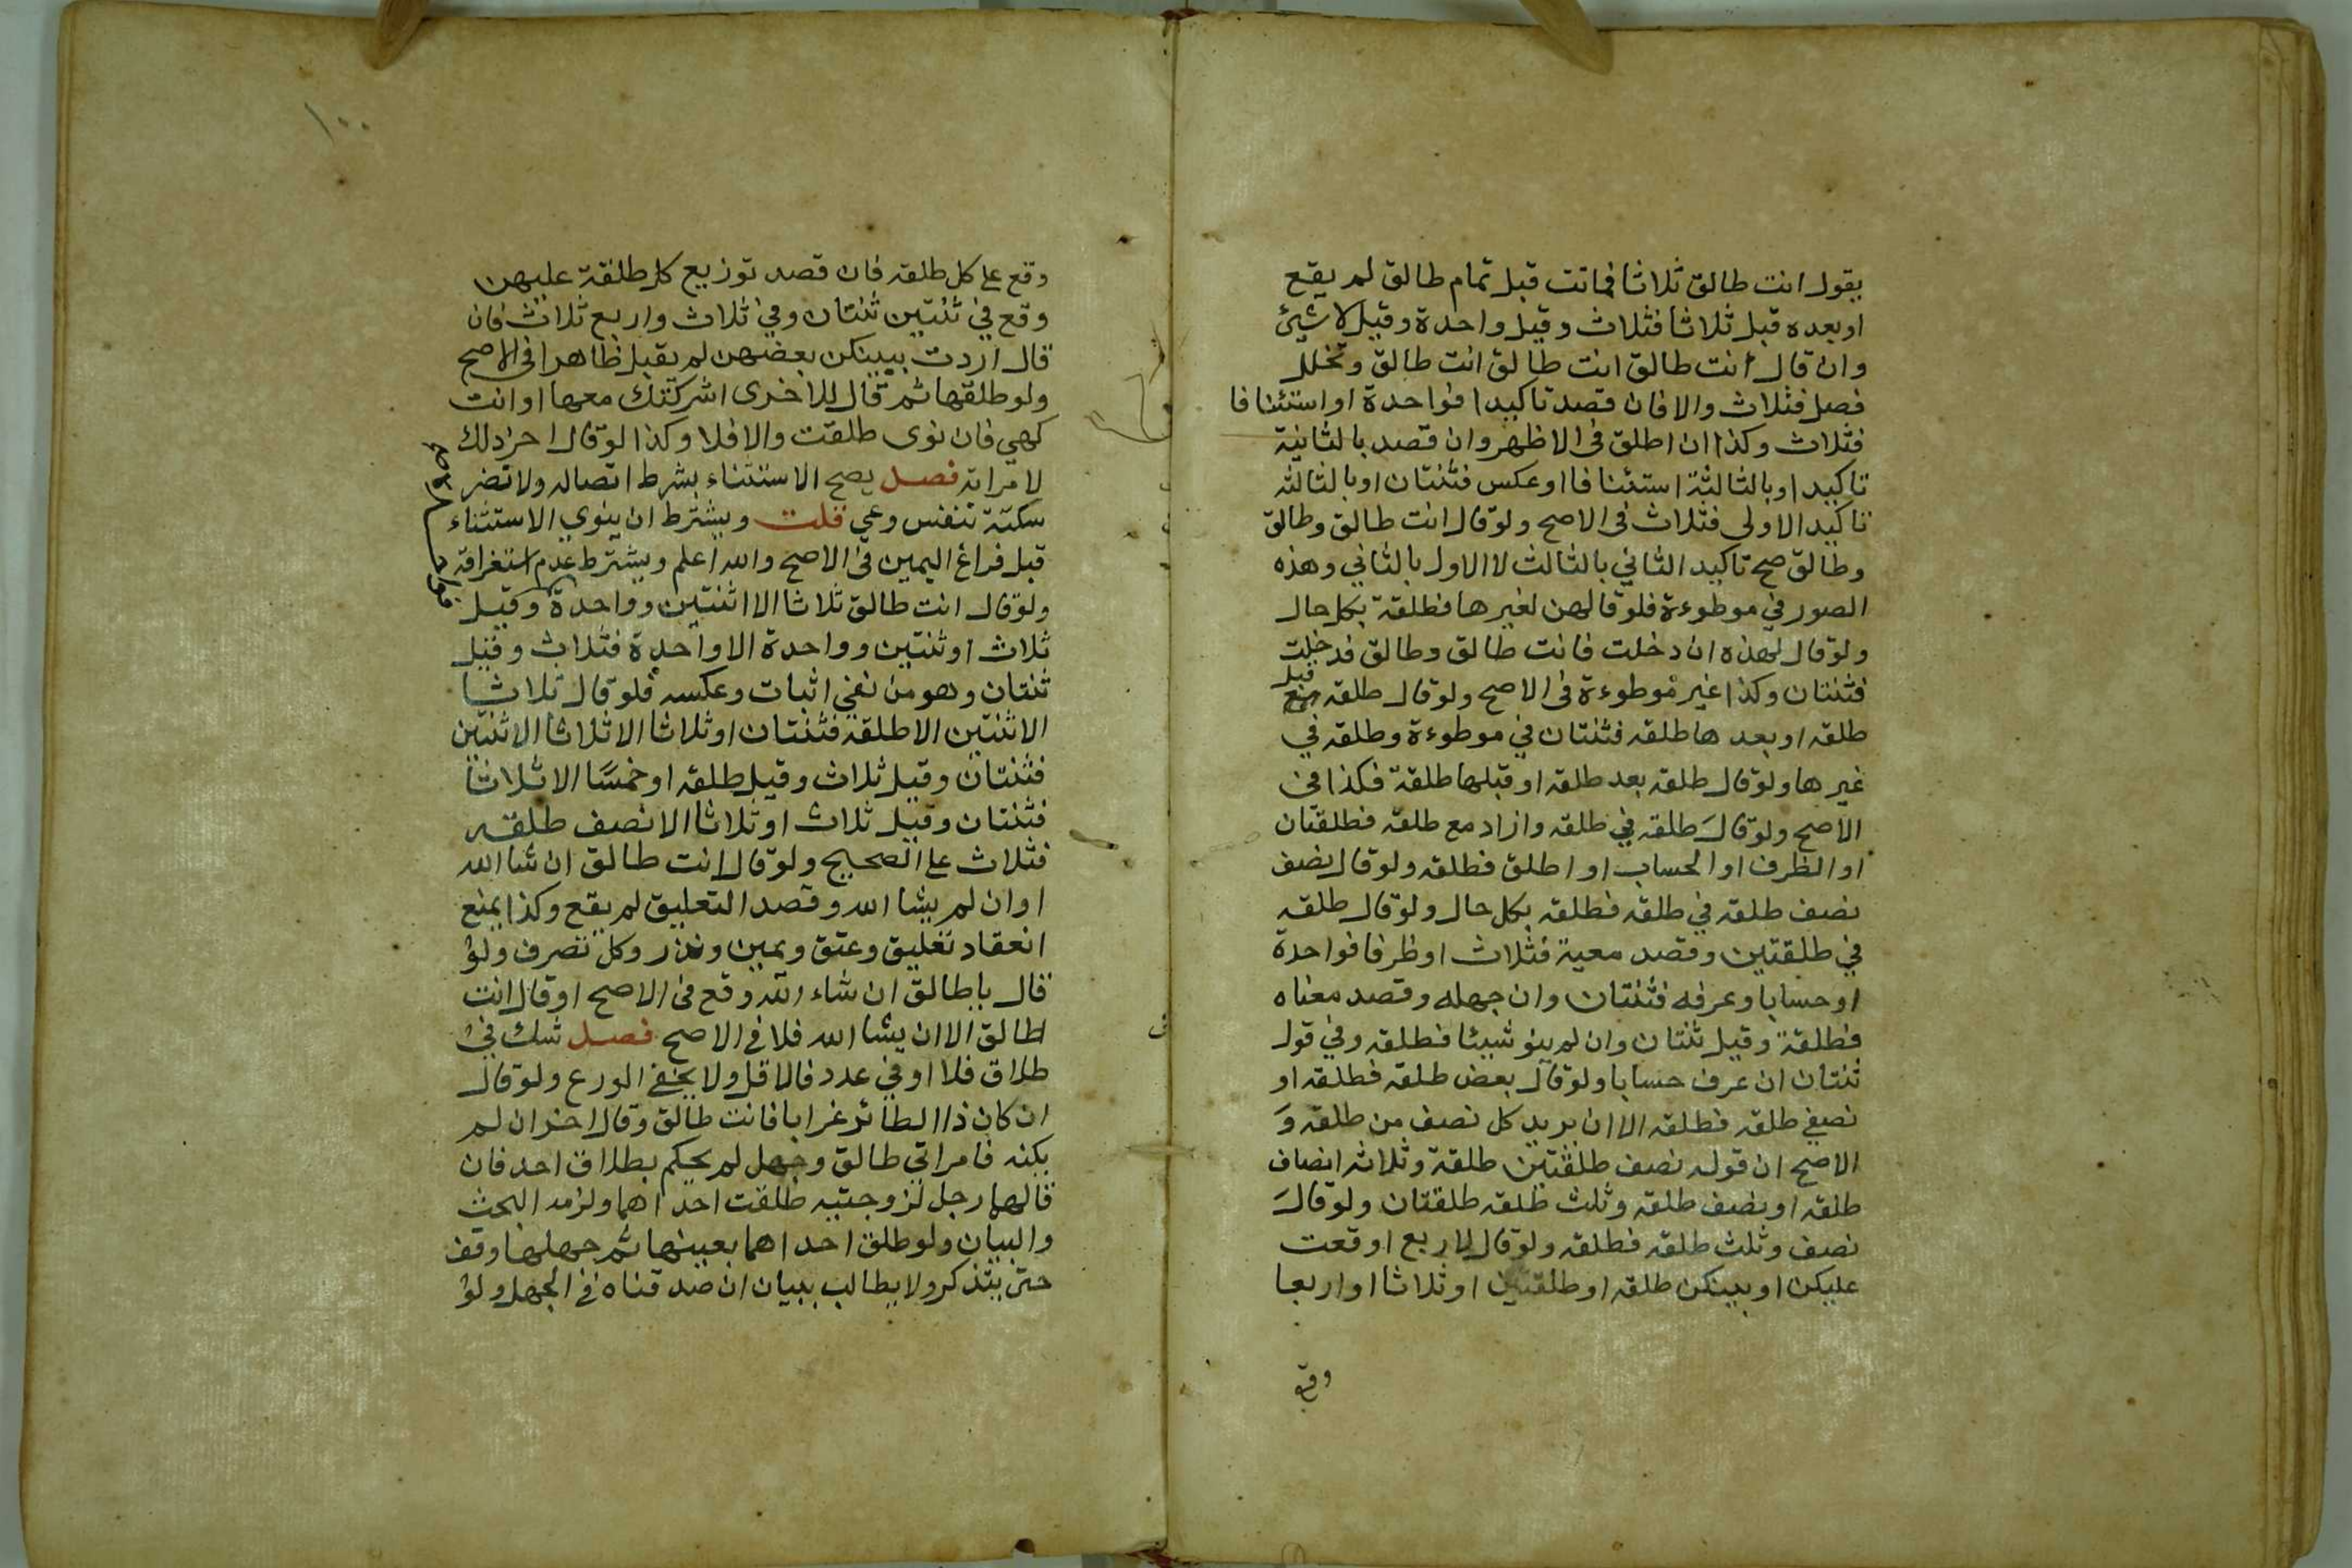 يقول انت طالق ثلاثا فماتت قبل تمام طالق لم يقع
او بعده قبل ثلاثا فثلاث وقيل واحدة وقيل لا شيئ
وان قال انت طالق انت طالق انت طالق وتخلل
فصل فثلاث والا فان قصد تاكيدا فواحدة او استئنافا
فثلاث وكذا ان اطلق في الاظهر وان قصد بالثانية
تاكيدا وبالثالثة استئنافا او عكس فثنتان او بالثالثه
تاكيد الاولى فثلاث في الاصح ولو قال انت طالق وطالق
وطالق صح تاكيد الثاني بالثالث لا الاول بالثاني وهذه
الصور في موطوءة فلو قالهن لغيرها فطلقة بكل حال
ولو قال لهذه ان دخلت فانت طالق وطالق فدخلت
فثنتان وكذا غير موطوءة في الاصح ولو قال طلقه مع
قبل
طلقه او بعدها طلقه فثنتان في موطوءة وطلقه في
غيرها ولو قال طلقه بعد طلقه او قبلها طلقة فكذا في
الاصح ولو قال طلقه في طلقه واراد مع طلقه فطلقتان
او الظرف او الحساب او اطلق فطلقه ولو قال نصف
نصف طلقه في طلقه فطلقه بكل حال ولو قال طلقه
في طلقتين وقصد معية فثلاث او ظرفا فواحدة
او حسابا وعرفه فثنتان وان جهله وقصد معناه
فطلقة وقيل ثنتان وان لم ينو شيئا فطلقه وفي قول
ثنتان ان عرف حسابا ولو قال بعض طلقه فطلقه او
نصفي طلقه فطلقه الا ان يريد كل نصف من طلقه و
الاصح ان قوله نصف طلقتين طلقة وثلاثه انصاف
طلقه او نصف طلقه وثلث طلقه طلقتان ولو قال
نصف وثلث طلقه فطلقه ولو قال لاربع اوقعت
عليكن او بينكن طلقه او طلقتين او ثلاثا او اربعا
وقع
١٠٠
وقع على كل طلقه فان قصد توزيع كل طلقة عليهن
وقع في ثنتين ثنتان وفي ثلاث واربع ثلاث فان
قال اردت ببينكن بعضهن لم يقبل ظاهرا في الاصح
ولو طلقها ثم قال للاخرى اشركتك معها او انت
كهي فان نوى طلقت والا فلا وكذا لو قال اخر ذلك
لامراته فصل يصح الاستثناء بشرط اتصاله ولا تضر
سكتة تنفس وعي قلت ويشترط ان ينوي الاستثناء
قبل فراغ اليمين في الاصح والله اعلم ويشترط عدم استغراقه
ولو قال انت طالق ثلاثا الا اثنتين وواحدة وقيل
ثلاث او ثنتين وواحدة الا واحدة فثلاث وقيل
ثنتان وهو من نفي اثبات وعكسه فلو قال ثلاثا
الا ثنتين الا طلقه فثنتان او ثلاثا الا ثلاثا الا ثنتين
فثنتان وقيل ثلاث وقيل طلقه او خمسا الا ثلاثا
فثنتان وقيل ثلاث او ثلاثا الا نصف طلقه
فثلاث على الصحيح ولو قال انت طالق ان شا الله
او ان لم يشا الله وقصد التعليق لم يقع وكذا يمنع
انعقاد تعليق وعتق ويمين ونذر وكل تصرف ولو
قال ياطالق ان شاء الله وقع في الاصح او قال انت
طالق الا ان يشا الله فلا في الاصح فصل شك في
طلاق فلا او في عدد فالاقل ولا يخفى الورع ولو قال
ان كان ذا الطائر غرابا فانت طالق وقال اخر ان لم
يكنه فامراتي طالق وجهل لم يحكم بطلاق احد فان
قالهما رجل لزوجتيه طلقت احداهما ولزمه البحث
والبيان ولو طلق احداهما بعينها ثم جهلها وقف
حتى يتذكر ولا يطالب ببيان ان صدقناه في الجهل ولو